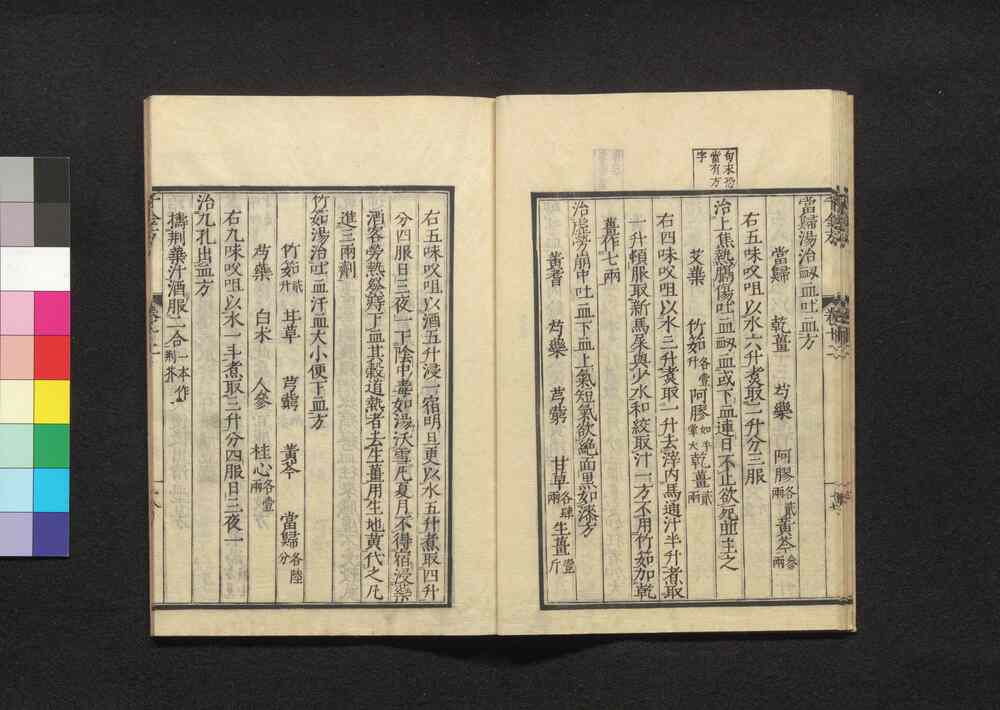 句末恐
當有方
字
當歸湯治衂血吐血方
當歸 乾薑 芍藥 阿膠各貳兩 黃芩參兩
右五味㕮咀以水六升煑取二升分三服
治上焦熱膈傷吐血衂血或下血連日不止欲死並主之
艾葉 竹茹各壹升 阿膠如半掌大 乾薑貳兩
右四味㕮咀以水三升煑取一升去滓内馬通汁半升煮取
一升頓服取新馬屎與少水和絞取汁一方不用竹茹加乾
薑作七兩
治虛勞崩中吐血下血上氣短氣欲絶面黑如漆方
黃耆 芍藥 芎藭 甘草各肆兩 生薑壹斤
右五味㕮咀以酒五升浸一宿明旦更以水五升煮取四升
分四服日三夜一下陰中毒如湯沃雪凡夏月不得宿浸
酒客勞熱發痔下血其穀道熱者去生薑用生地黃代之凡
進三兩劑
竹茹湯治吐血汗血大小便下血方
竹茹貳升 甘草 芎藭 黃芩 當歸各陸分
芍藥 白朮 人參 桂心各壹兩
右九味㕮咀以水一斗煮取三升分四服日三夜一
治九孔出血方
擣荆葉汁酒服二合一本作荆芥
千金方